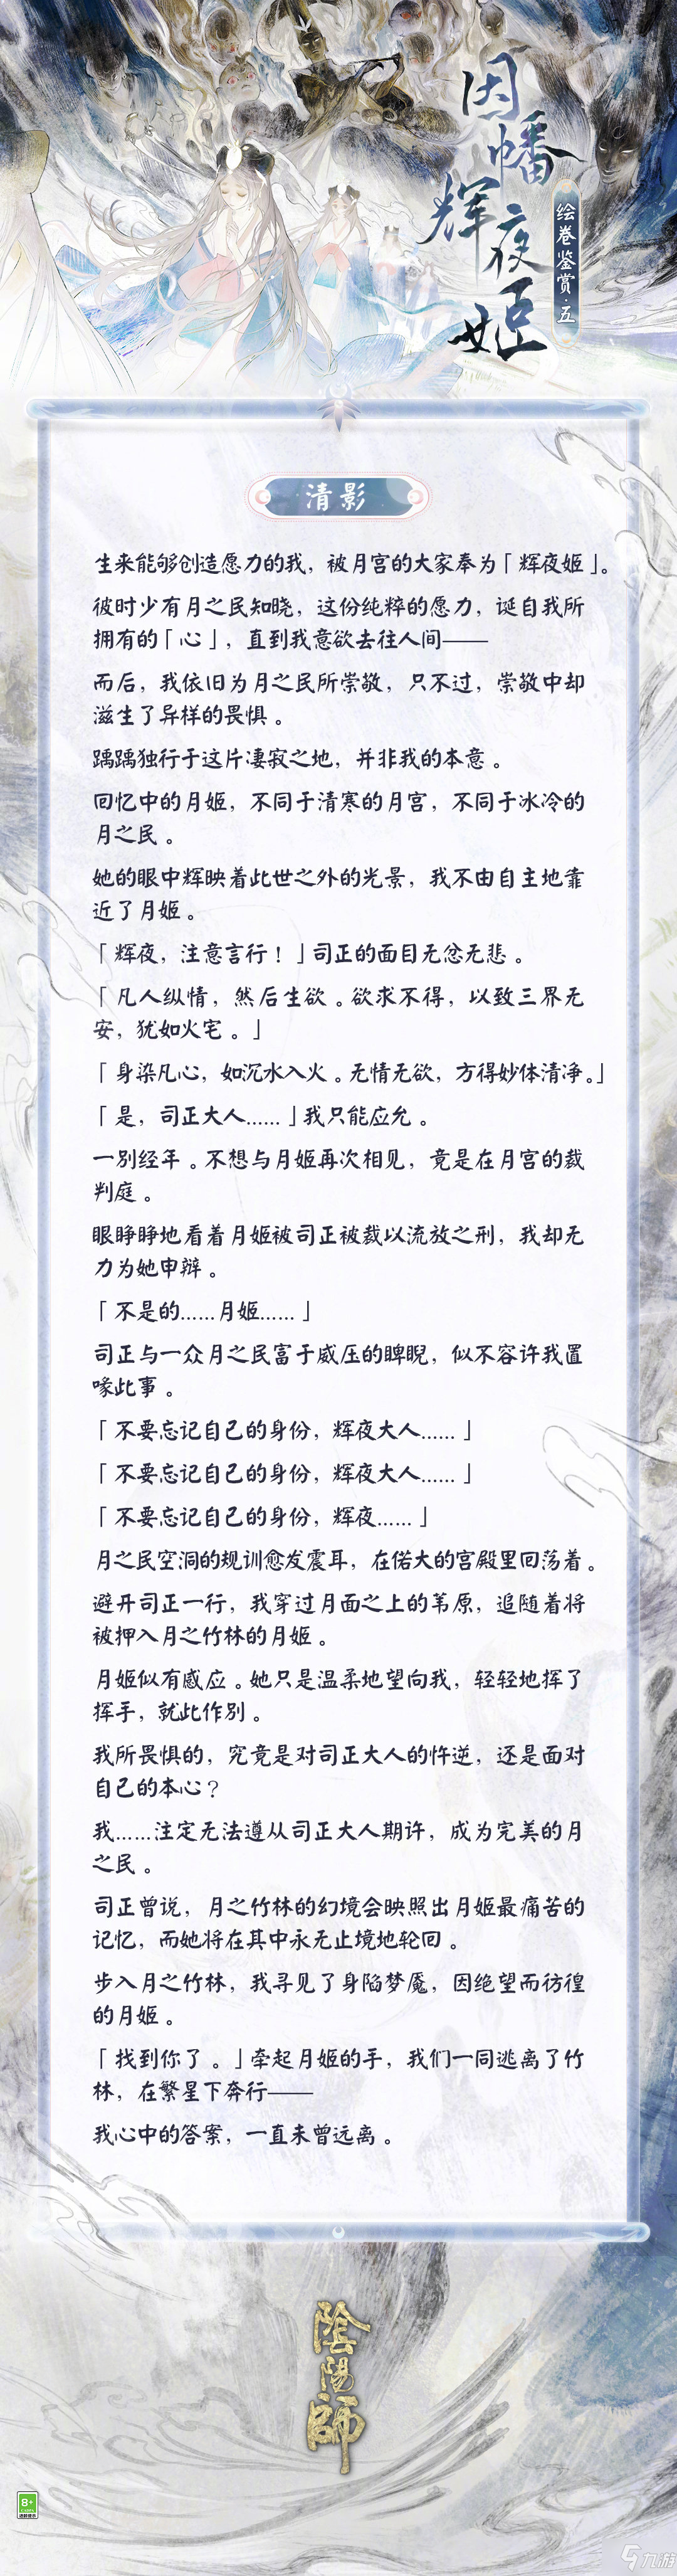 因幡
辉夜姬
绘卷鉴赏·五
清影
生来能够创造愿力的我，被月宫的大家奉为「辉夜姬」。
彼时少有月之民知晓，这份纯粹的愿力，诞自我所
拥有的「心」，直到我意欲去往人间——
而后，我依旧为月之民所崇敬，只不过，崇敬中却
滋生了异样的畏惧。
踽踽独行于这片凄寂之地，并非我的本意。
回忆中的月姬，不同于清寒的月宫，不同于冰冷的
月之民。
她的眼中辉映着此世之外的光景，我不由自主地靠
近了月姬。
「辉夜，注意言行！」司正的面目无忿无悲。
「凡人纵情，然后生欲。欲求不得，以致三界无
安，犹如火宅。」
「身染凡心，如沉水入火。无情无欲，方得妙体清净。」
「是，司正大人……」我只能应允。
一别经年。不想与月姬再次相见，竟是在月宫的裁
判庭。
眼睁睁地看着月姬被司正被裁以流放之刑，我却无
力为她申辩。
「不是的……月姬……」
司正与一众月之民富于威压的睥睨，似不容许我置
喙此事。
「不要忘记自己的身份，辉夜大人……」
「不要忘记自己的身份，辉夜大人……」
「不要忘记自己的身份，辉夜……」
月之民空洞的规训愈发震耳，在偌大的宫殿里回荡着。
避开司正一行，我穿过月面之上的苇原，追随着将
被押入月之竹林的月姬。
月姬似有感应。她只是温柔地望向我，轻轻地挥了
挥手，就此作别。
我所畏惧的，究竟是对司正大人的忤逆，还是面对
自己的本心？
我……注定无法遵从司正大人期许，成为完美的月
之民。
司正曾说，月之竹林的幻境会映照出月姬最痛苦的
记忆，而她将在其中永无止境地轮回。
步入月之竹林，我寻见了身陷梦魇，因绝望而彷徨
的月姬。
「找到你了。」牵起月姬的手，我们一同逃离了竹
林，在繁星下奔行——
我心中的答案，一直未曾远离。
陰陽師
8+
九游